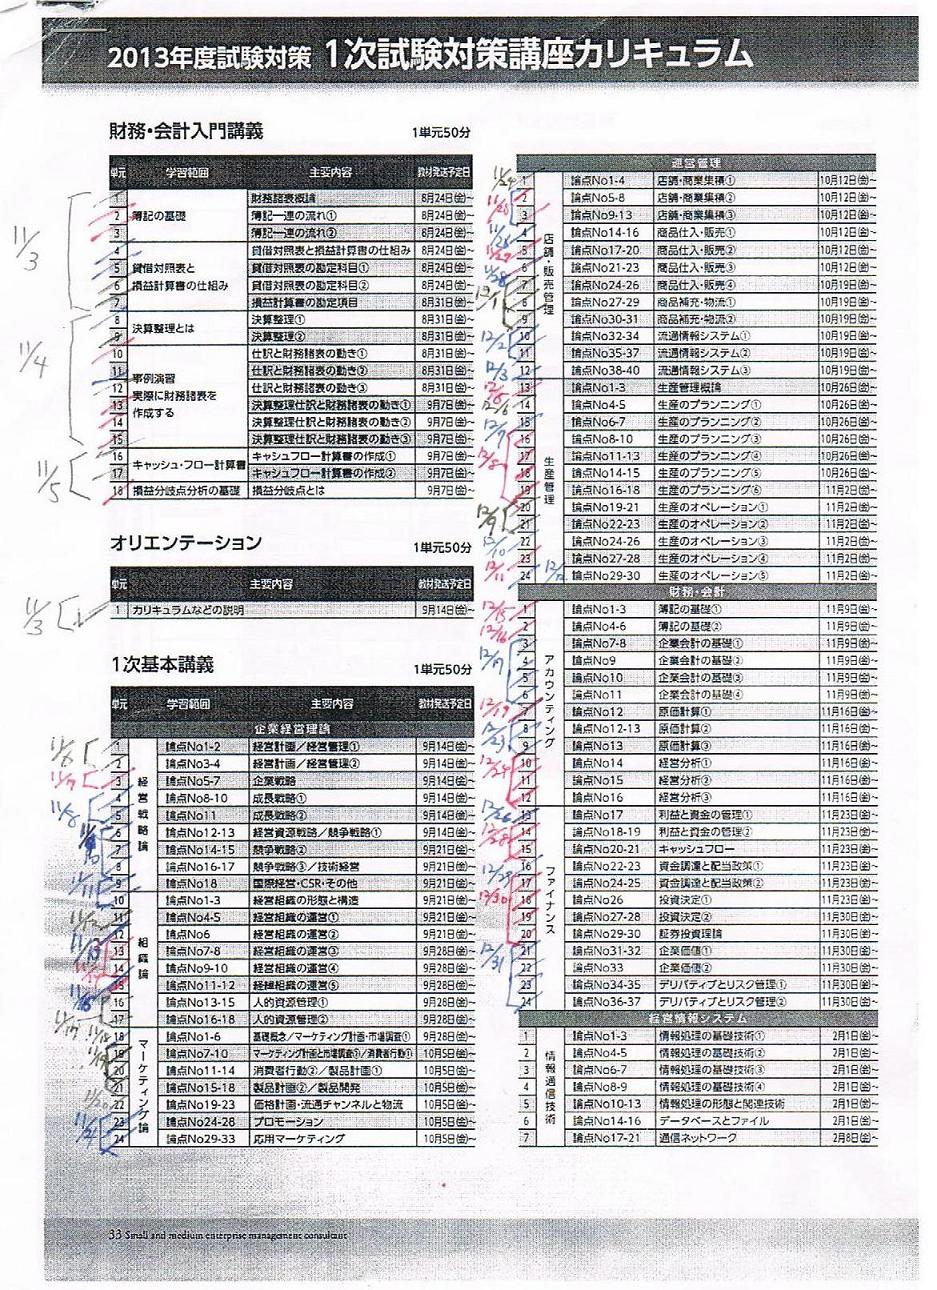 2013年度試験対策 1次試験対策講座カリキュラム
財務・会計入門講義 1単元50分
単元 学習範囲 主要内容 教材発送予定日
1 簿記の基礎 財務諸表概論 8月24日(金)~
2 簿記一連の流れ① 8月24日(金)~
3 簿記一連の流れ② 8月24日(金)~
4 貸借対照表と損益計算書の仕組み 貸借対照表と損益計算書の仕組み 8月24日(金)~
5 貸借対照表の勘定科目① 8月24日(金)~
6 貸借対照表の勘定科目② 8月24日(金)~
7 損益計算書の勘定項目 8月31日(金)~
8 決算整理とは 決算整理① 8月31日(金)~
9 決算整理② 8月31日(金)~
10 事例演習 実際に財務諸表を作成する 仕訳と財務諸表の動き① 8月31日(金)~
11 仕訳と財務諸表の動き② 8月31日(金)~
12 仕訳と財務諸表の動き③ 8月31日(金)~
13 決算整理仕訳と財務諸表の動き① 9月7日(金)~
14 決算整理仕訳と財務諸表の動き② 9月7日(金)~
15 決算整理仕訳と財務諸表の動き③ 9月7日(金)~
16 キャッシュ・フロー計算書 キャシュフロー計算書の作成① 9月7日(金)~
17 キャッシュフロー計算書の作成② 9月7日(金)~
18 損益分岐点分析の基礎 損益分岐点とは 9月7日(金)~
11/3
11/4
11/5
オリエンテーション 1単元50分
単元 主要内容 教材発送予定日
1 カリキュラムなどの説明 9月14日(金)~
11/3
1次基本講義 1単元50分
単元 学習範囲 主要内容 教材発送予定日
企業経営理論
経営戦略論
1 論点No1-2 経営計画/経営管理① 9月14日(金)~
2 論点No3-4 経営計画/経営管理② 9月14日(金)~
3 論点No5-7 企業戦略 9月14日(金)~
4 論点No8-10 成長戦略① 9月14日(金)~
5 論点No11 成長戦略② 9月14日(金)~
6 論点No12-13 経営資源戦略/競争戦略① 9月14日(金)~
7 論点No14-15 競争戦略② 9月21日(金)~
8 論点No16-17 競争戦略③/技術経営 9月21日(金)~
9 論点No18 国際経営・CSR・その他 9月21日(金)~
組織論
10 論点No1-3 経営組織の形態と構造 9月21日(金)~
11 論点No4-5 経営組織の運営① 9月21日(金)~
12 論点No6 経営組織の運営② 9月21日(金)~
13 論点No7-8 経営組織の運営③ 9月28日(金)~
14 論点No9-10 経営組織の運営④ 9月28日(金)~
15 論点No11-12 経営組織の運営⑤ 9月28日(金)~
16 論点No13-15 人的資源管理① 9月28日(金)~
17 論点No16-18 人的資源管理② 9月28日(金)~
マーケティング論
18 論点No1-6 基礎概念/マーケティング計画・市場調査① 9月28日(金)~
19 論点No7-10 マーケティング計画と市場調査①/消費者行動① 10月5日(金)~
20 論点No11-14 消費者行動②/製品計画① 10月5日(金)~
21 論点No15-18 製品計画②/製品開発 10月5日(金)~
22 論点No19-23 価格計画・流通チャンネルと物流 10月5日(金)~
23 論点No24-28 プロモーション 10月5日(金)~
24 論点No29-33 応用マーケティング 10月5日(金)~
運営管理
店舗・販売管理
1 論点No1-4 店舗・商業集積① 10月12日(金)~
2 論点No5-8 店舗・商業集積② 10月12日(金)~
3 論点No9-13 店舗・商業集積③ 10月12日(金)~
4 論点No14-16 商品仕入・販売① 10月12日(金)~
5 論点No17-20 商品仕入・販売② 10月12日(金)~
6 論点No21-23 商品仕入・販売③ 10月12日(金)~
7 論点No24-26 商品仕入・販売④ 10月12日(金)~
8 論点No27-29 商品補充・物流① 10月12日(金)~
9 論点No30-31 商品補充・物流② 10月19日(金)~
10 論点No32-34 流通情報システム① 10月19日(金)~
11 論点No35-37 流通情報システム② 10月19日(金)~
12 論点No38-40 流通情報システム③ 10月19日(金)~
生産管理
13 論点No1-3 生産管理概論 10月26日(金)~
14 論点No4-5 生産のプランニング① 10月26日(金)~
15 論点No6-7 生産のプランニング② 10月26日(金)~
16 論点No8-10 生産のプランニング③ 10月26日(金)~
17 論点No11-13 生産のプランニング④ 10月26日(金)~
18 論点No14-15 生産のプランニング⑤ 10月26日(金)~
19 論点No16-18 生産のプランニング⑥ 11月2日(金)~
20 論点No19-21 生産のオペレーション① 11月2日(金)~
21 論点No22-23 生産のオペレーション② 11月2日(金)~
22 論点No24-26 生産のオペレーション③ 11月2日(金)~
23 論点No27-28 生産のオペレーション④ 11月2日(金)~
24 論点No29-30 生産のオペレーション⑤ 11月2日(金)~
財務・会計
アカウンティング
1 論点No1-3 簿記の基礎① 11月9日(金)~
2 論点No4-6 簿記の基礎② 11月9日(金)~
3 論点No7-8 企業会計の基礎① 11月9日(金)~
4 論点No9 企業会計の基礎② 11月9日(金)~
5 論点No10 企業会計の基礎③ 11月9日(金)~
6 論点No11 企業会計の基礎④ 11月9日(金)~
7 論点No12 原価計算① 11月16日(金)~
8 論点No12-13 原価計算② 11月16日(金)~
9 論点No13 原価計算③ 11月16日(金)~
10 論点No14 経営分析① 11月16日(金)~
11 論点No15 経営分析② 11月16日(金)~
12 論点No16 経営分析③ 11月16日(金)~
ファイナンス
13 論点No17 利益と資金の管理① 11月23日(金)~
14 論点No18-19 利益と資金の管理② 11月23日(金)~
15 論点No20-21 キャッシュフロー 11月23日(金)~
16 論点No22-23 資金調達と配当政策① 11月23日(金)~
17 論点No24-25 資金調達と配当政策② 11月23日(金)~
18 論点No26 投資決定① 11月23日(金)~
19 論点No27-28 投資決定② 11月30日(金)~
20 論点No29-30 証券投資理論 11月30日(金)~
21 論点No31-32 企業価値① 11月30日(金)~
22 論点No33 企業価値② 11月30日(金)~
23 論点No34-35 デリバティブとリスク管理① 11月30日(金)~
24 論点No36-37 デリバティブとリスク管理② 11月30日(金)~
経営情報システム
情報通信技術
1 論点No1-3 情報処理の基礎技術① 2月1日(金)~
2 論点No4-5 情報処理の基礎技術② 2月1日(金)~
3 論点No6-7 情報処理の基礎技術③ 2月1日(金)~
4 論点No8-9 情報処理の基礎技術④ 2月1日(金)~
5 論点No10-13 情報処理の形態と関連技術 2月1日(金)~
6 論点No14-16 データベースとファイル 2月1日(金)~
7 論点No17-21 通信ネットワーク 2月8日(金)~
33 Small and medium enterprise management consultant